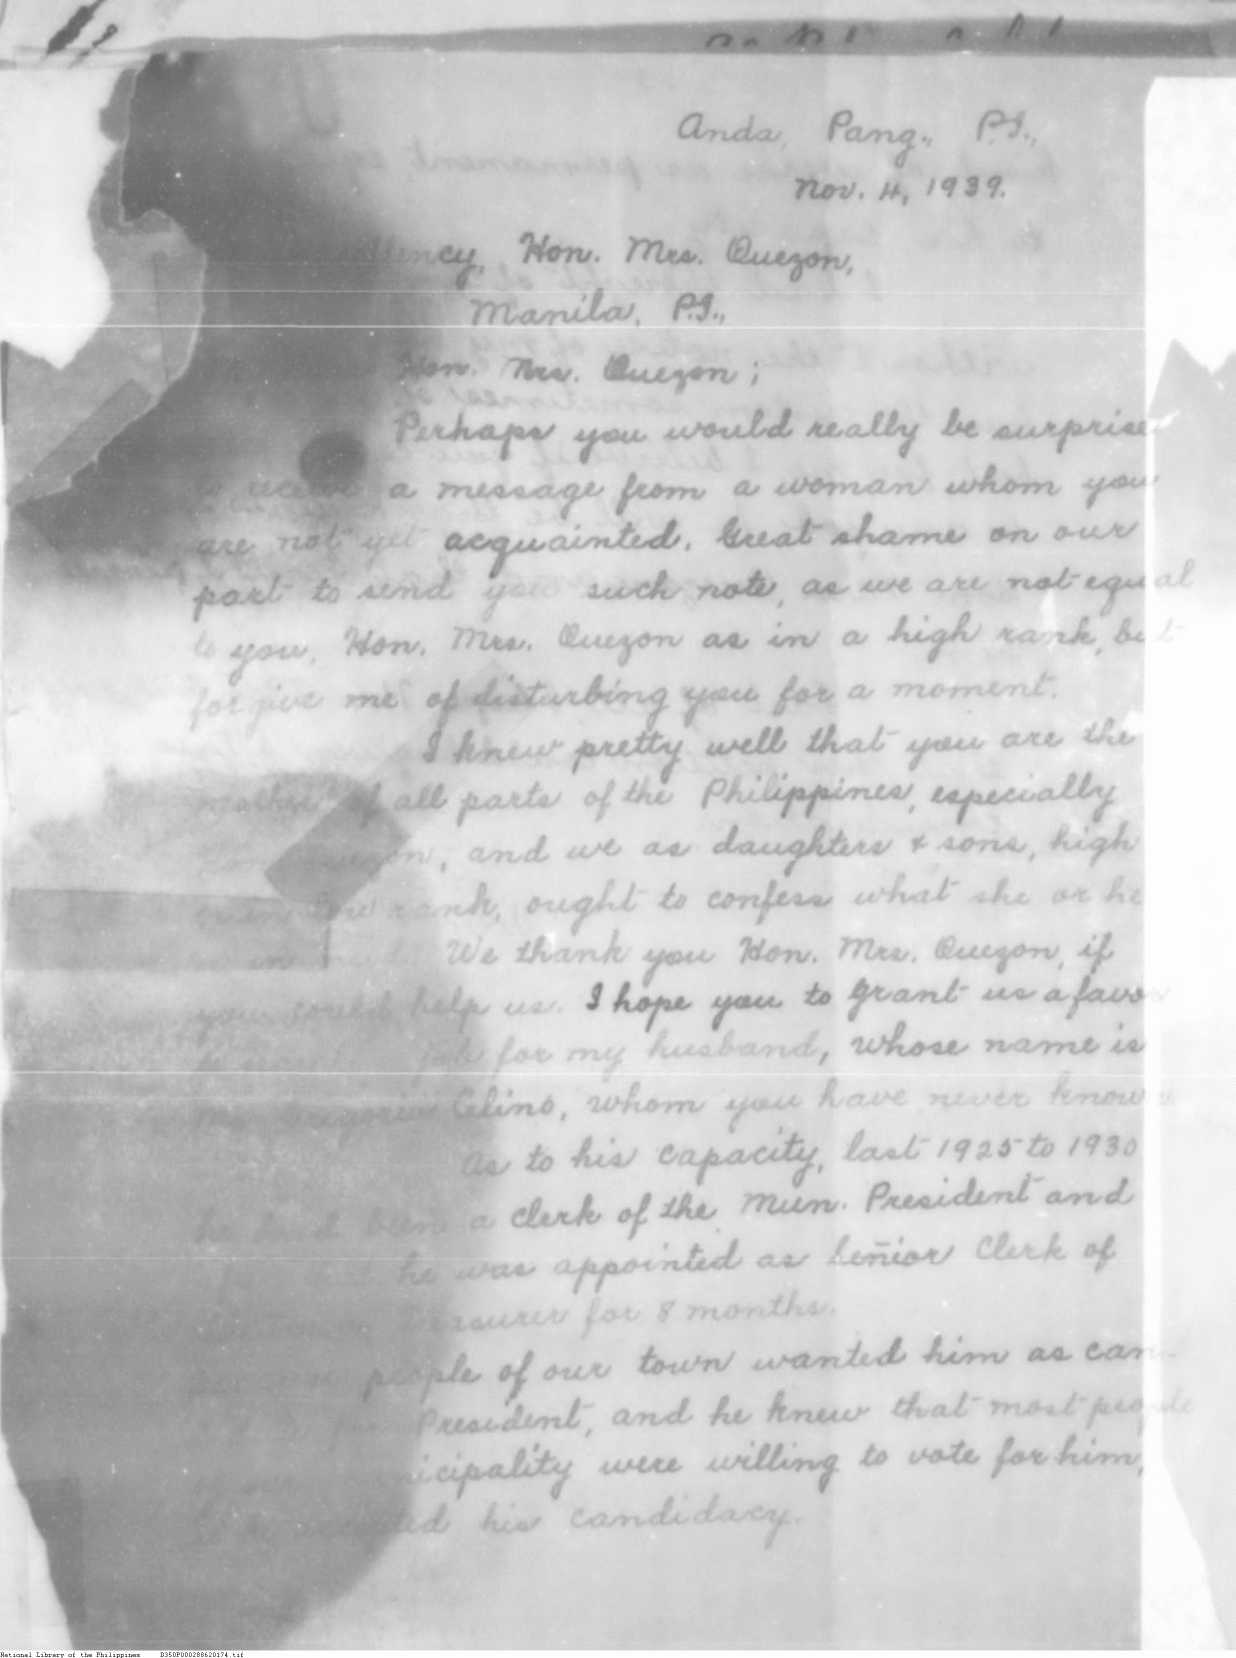 Anda, Pang., P.I.,
Nov. 4, 1939.
Hon. Mrs. Quezon,
Manila, P.I.,
Hon. Mrs. Quezon;
Perhaps you would really be surprise
to receive a message from a woman whom you
are not yet acquainted. Great shame on our
part to send you such note, as we are not equal
to you, Hon. Mrs. Quezon as in a high rank, but
forgive me of disturbing you for a moment.
I knew pretty well that you are the
mother of all parts of the Philippines, especially
and we as daughters & sons, high
rank, ought to confess what she or he
in We thank you Hon. Mrs. Quezon, if
you could help us. I hope you to grant us a favor
for my husband, whose name is
Celino, whom you have never known
As to his capacity, last 1925 to 1930
he had been a clerk of the Mun. President and
he was appointed as Señior Clerk of
Treasurer for 8 months.
people of our town wanted him as can-
for President, and he knew that most people
municipality were willing to vote for him,
his candidacy.
National Library of the Philippines D350P000288620174.tif